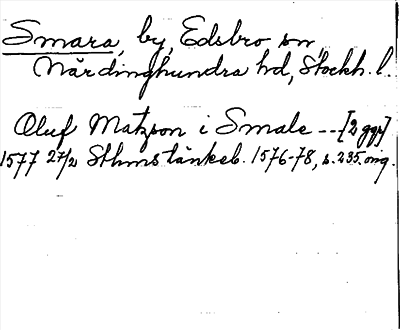 Smara, by, Edsbro sn,
Närdinghundra hd, Stockh. l.
Oluf Matzson i Smale -- [2 ggr]
1577 27/2 Sthms tänkeb. 1576-78, s. 235. orig.